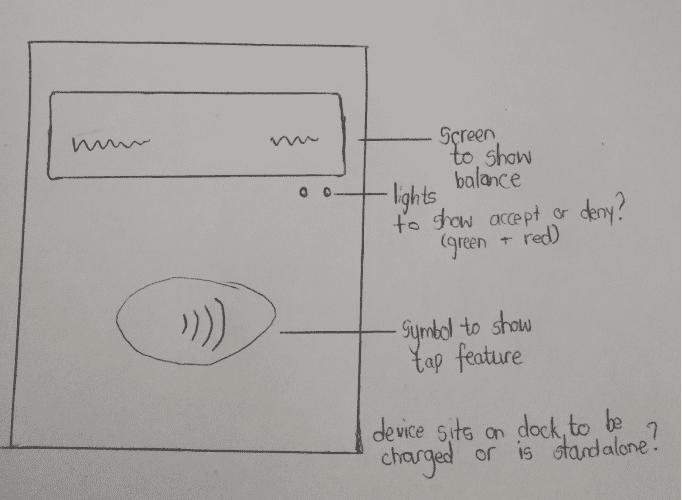 Screen
to show
balance
lights
to show accept or deny?
(green + red)
Symbol to show
tap feature
device sits on dock, to be
charged or is standalone?